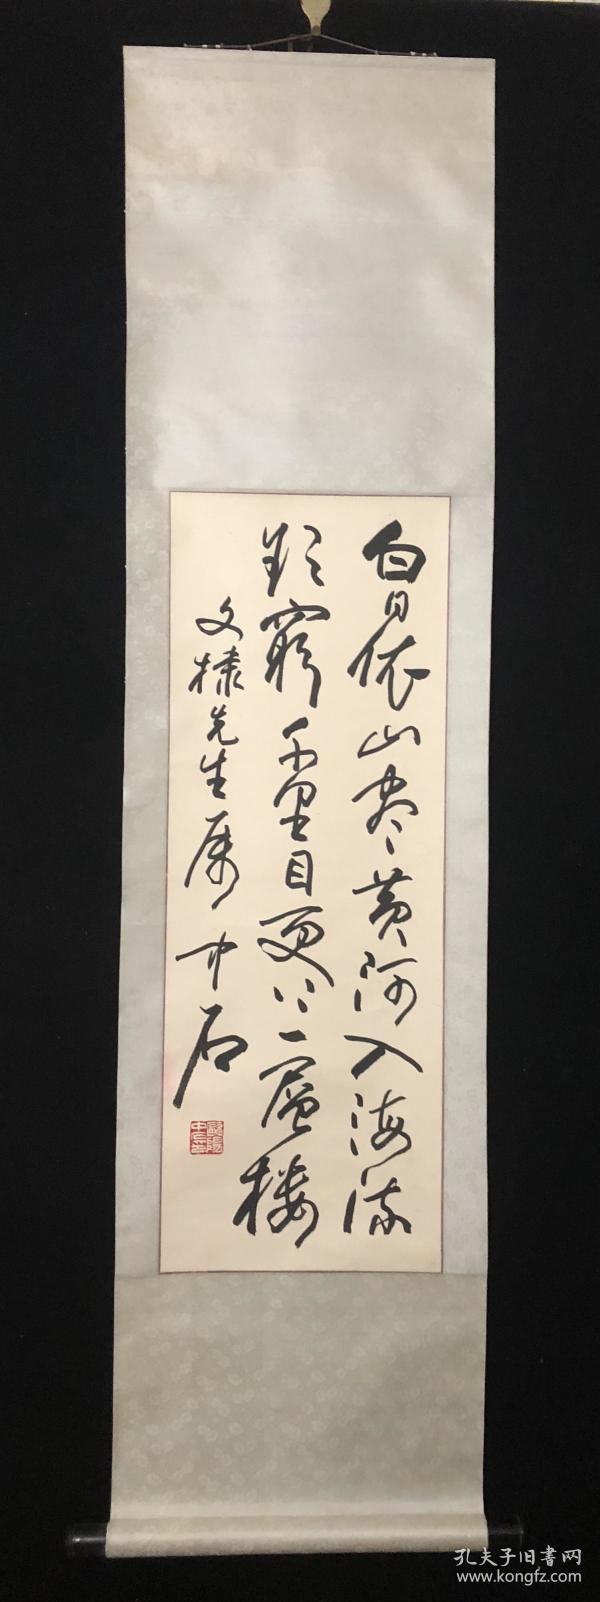 白日依山尽黄河入海流
欲穷千里目更上一层楼
文棣先生属 中石
孔夫子旧書网
www.kongfz.com